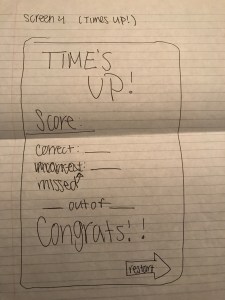 Screen 4 (Times Up!)
TIME'S
UP!
Score
correct:
missed
out of
Congrats!!
restart